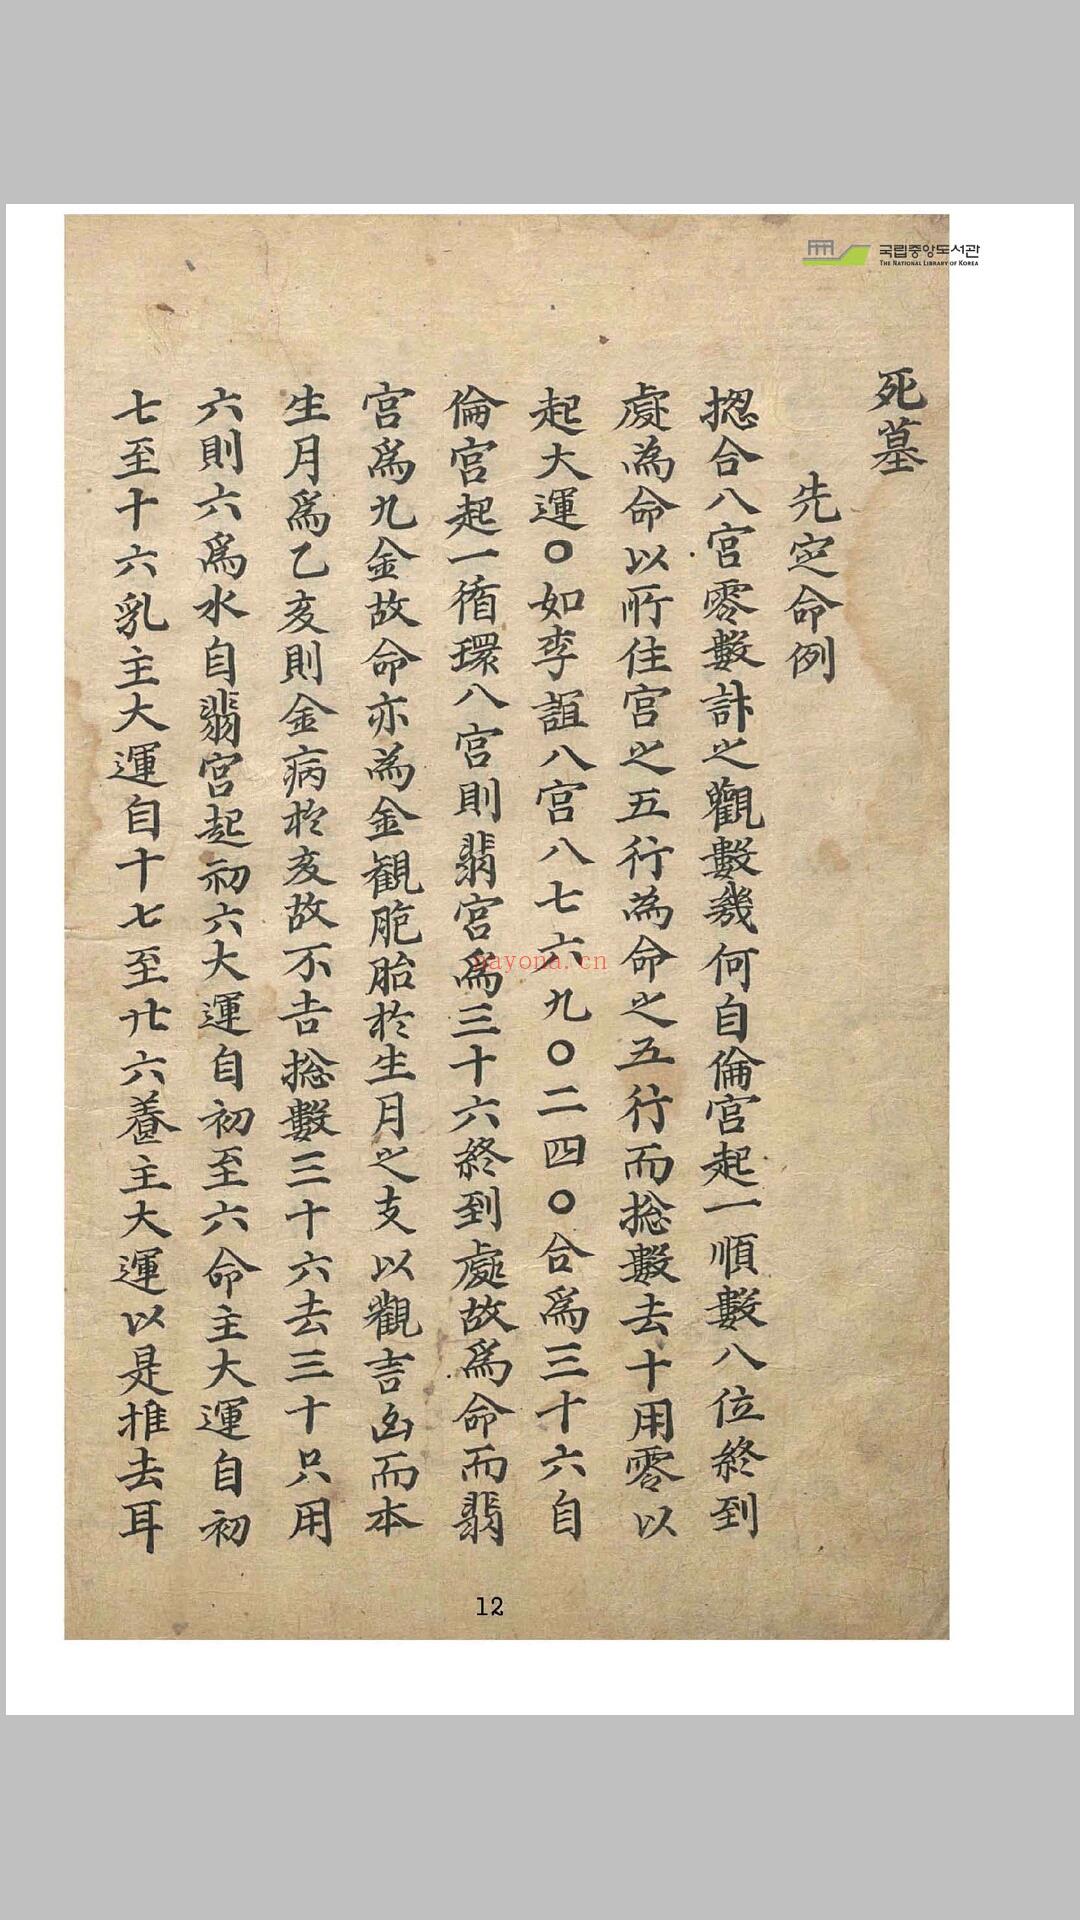 국립중앙도서관
THE NATIONAL LIBRARY OF KOREA
死墓
先定命例
揔合八宮零數計之觀數幾何自倫宮起一順數八位終到
處為命以所住宮之五行為命之五行而捴數去十用零以
起大運〇如李誼八宮八七六九〇二四〇合爲三十六自
倫宮起一循環八宮則翡宮爲三十六終到處故爲命而翡
宮爲九金故命亦為金観胞胎於生月之支以觀吉凶而本
生月爲乙亥則金病於亥故不吉捴數三十六去三十只用
六則六爲水自翡宮起初六大運自初至六命主大運自初
七至十六乳主大運自十七至卄六養主大運以是推去耳
nayona.cn
12